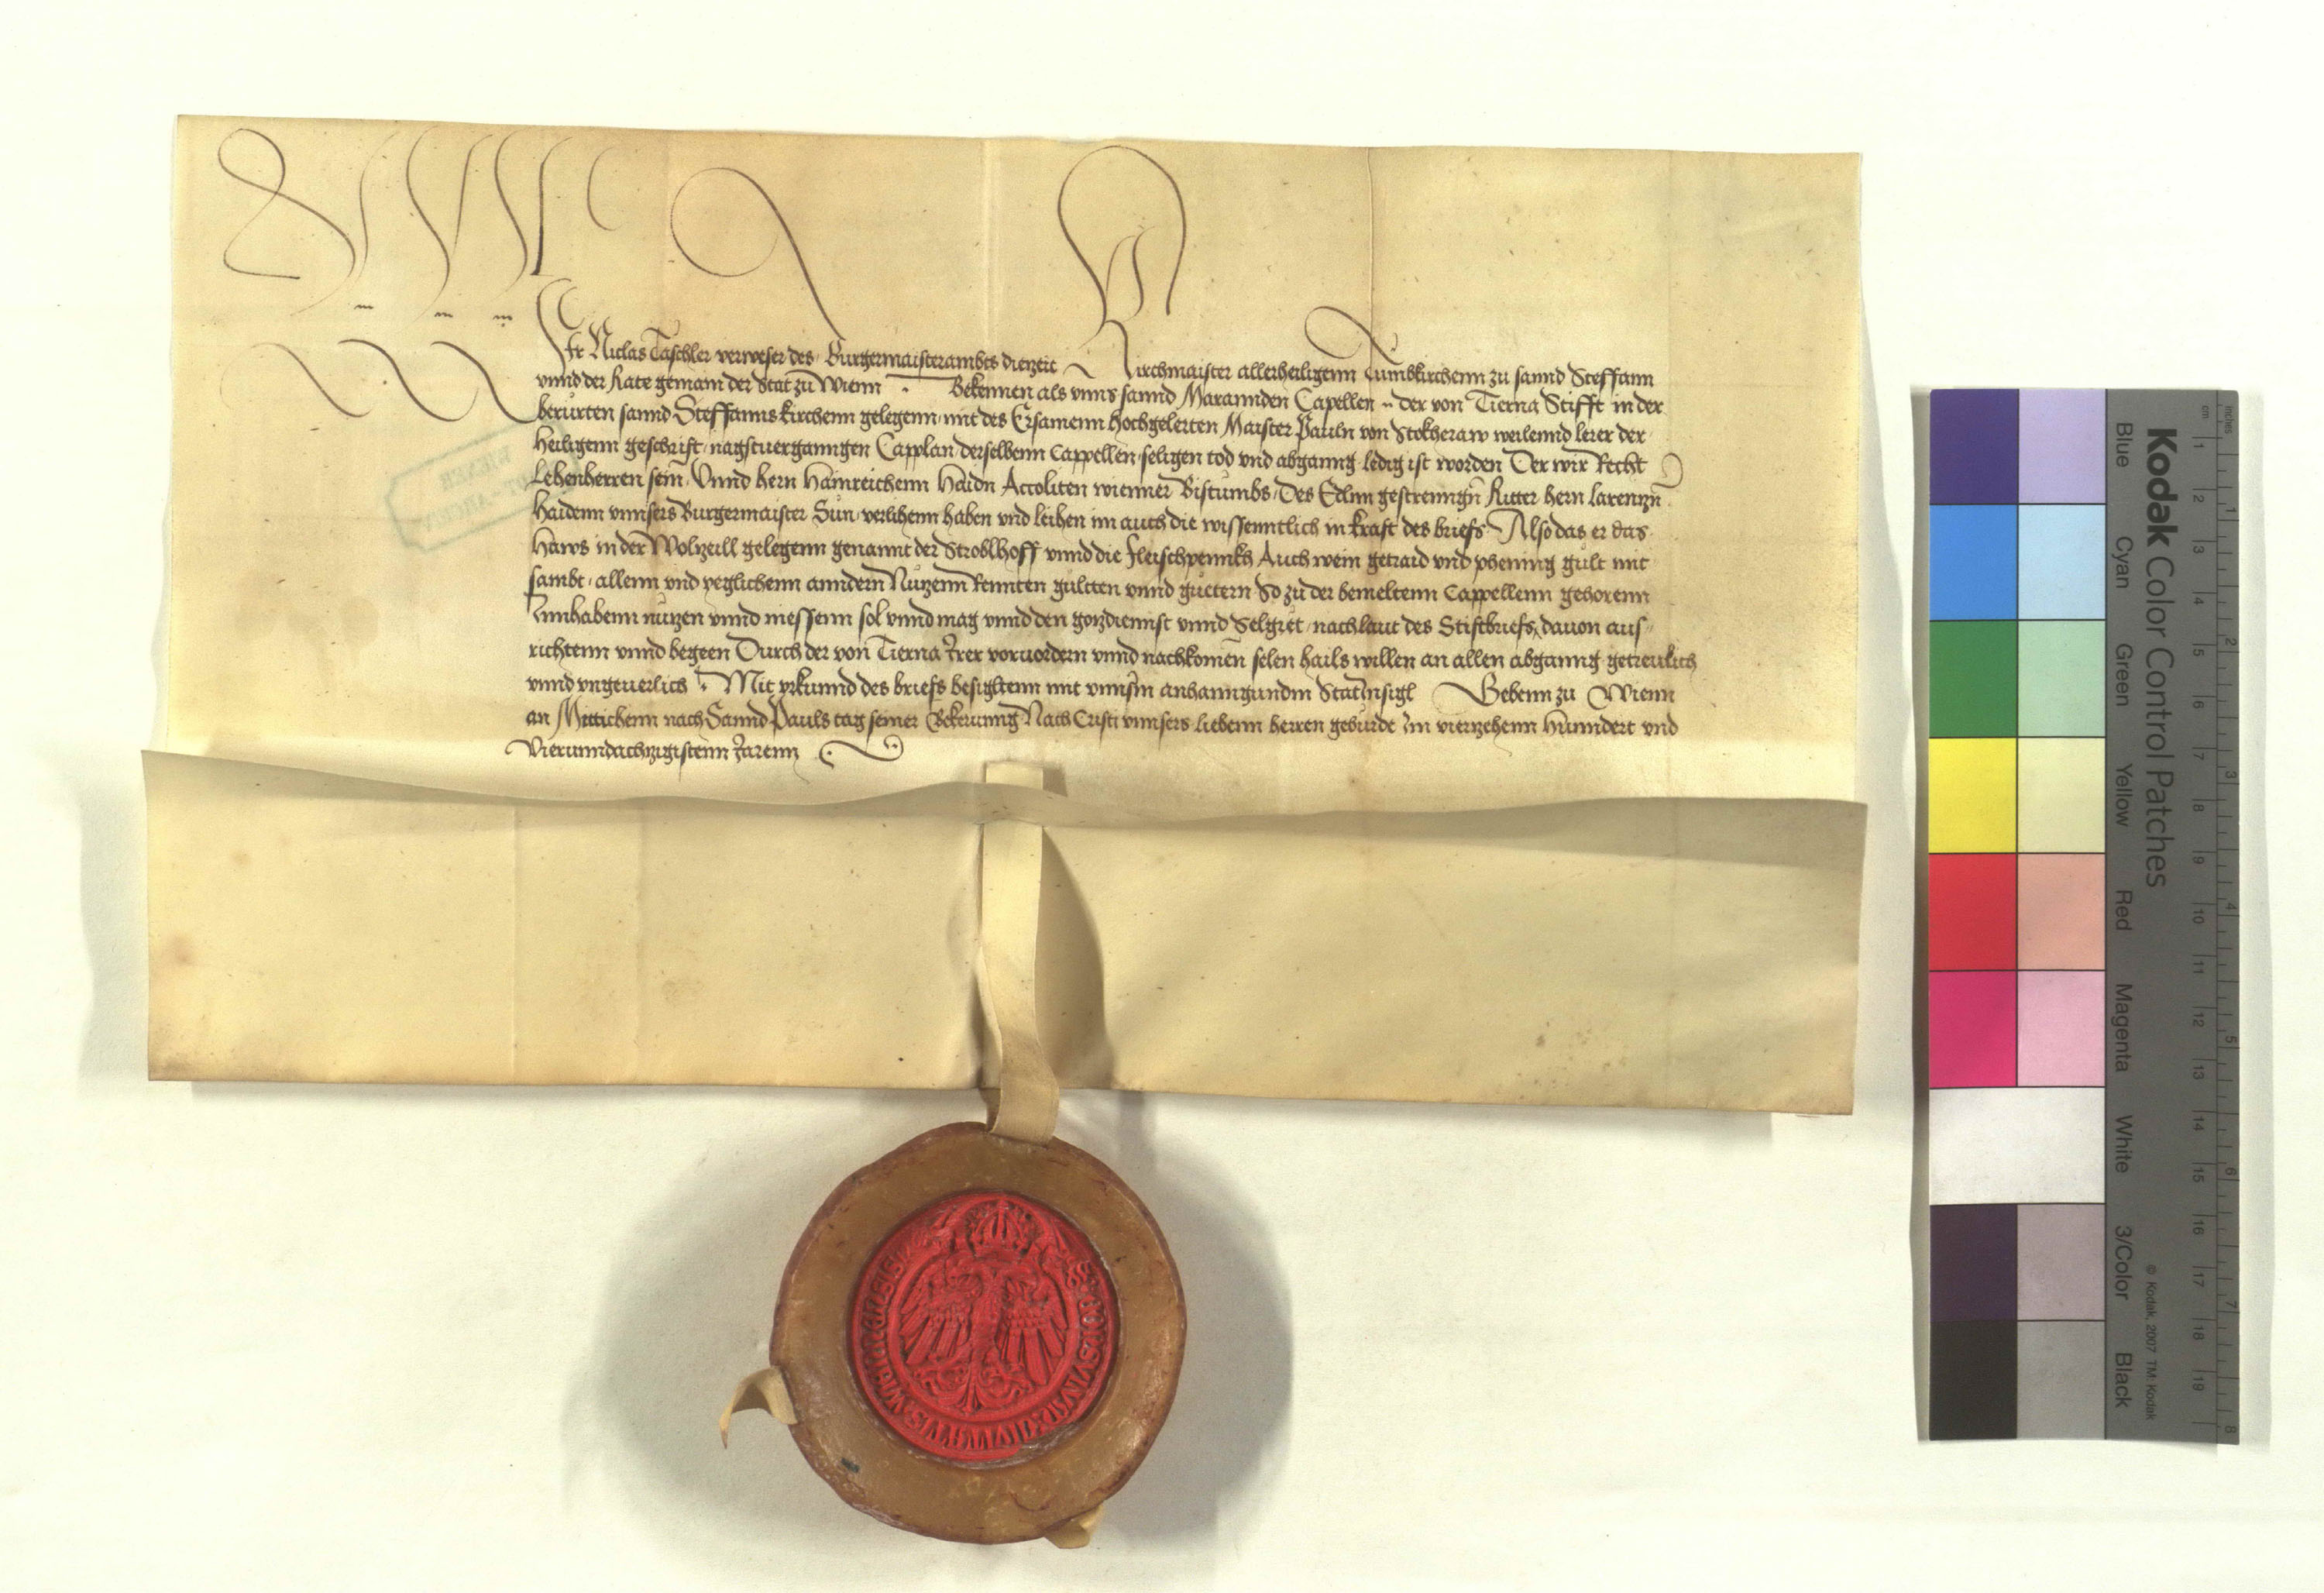 Wir Niclas Taschler verweser des Burgermaisterambts dietzeit Kirchmaister allerheiligenn Tumbkirchenn zu sannd Steffann
vnnd der Rate gemain der Stat zu Wienn Bekennen als vnns sannd Marannden Capellen der von Tierna Stifft in der
berurten sannd Steffanns kirchenn gelegenn mit des Ersamenn Hochgelerten Maister Pauln von Stokheraw weilennd lerer der
Heiligenn geschrift nagstuergangen Capplan derselbenn Cappellen seligen tod vnd abganng ledig ist worden Der wir Recht
Lehenherren sein Vnnd hern Hainreichenn Haidn Accoliten wienner Bistumbs Des Edlnn gestrenngn Ritter hern Larentzn
Haidenn vnnsers Burgermaister Sun verlihenn haben vnd leihen im auch die wissenntlich in kraft des briefs Also das er das
Haws in der Wolzeill gelegenn genannt der Stroblhoff vnnd die fleischpennkh Auch wein getraid vnd phening gult mit
sambt allenn vnd yeglichenn anndern Nutzenn Rennten gultten vnnd guetern So zu der bemeltenn Cappellenn gehorenn
Innhabenn nutzen vnnd niessenn sol vnnd mag vnnd den gotzdiennst vnnd Selgret nach laut des Stiftbriefs dauon aus
richtenn vnnd begeen Durch der von Tierna Irer voruordern vnnd nachkomen selen hails willen an allen abganng getreulich
vnnd vngeuerlich Mit vrkunnd des briefs besigltenn mit vnnserm anhanngundm Stat Insigl Gebenn zu Wienn
an Mittichenn nach Sannd Pauls tag seiner Bekerunng Nach Cristi vnnsers liebenn herren geburde Im vierzehenn Hunndert vnd
Vierunndachtzigistenn Jarenn
WIENER
Kodak Color Control Patches
Blue Cyan Green Yellow Red Magenta White 3/Color Black
© Kodak, 2007 TM: Kodak
cm 1 2 3 4 5 6 7 8 9 10 11 12 13 14 15 16 17 18 19
inches 1 2 3 4 5 6 7 8